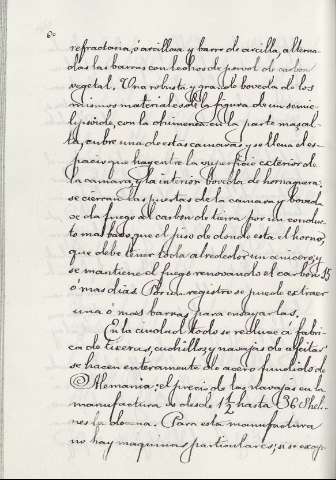 60
refractaria, ó arcillosa y barro de arcilla, alterna-
das las barras con lechos de parval de carbon
vegetal, Una robusta y grande boveda de los
mismos materiales de la figura de un semie-
lipsoide, con la chimenea en la parte mas al-
ta, cubre una de estas camaras y se llena el es-
pacio que hay entre la superficie exterior de
la camara, y la interior boveda de hornaguera,
se cierran las puertas de la camara y boveda
se da fuego al carbon de tierra por un conduc-
to mas bajo que el piso de donde esta el horno,
que debe tener todo alrededor un anicoro, y
se mantiene el fuego renovando el carbon 15
ó mas dias. Por un registro se puede extraer
una ó mas barras para ensayarlas.
En la ciudad todo se reduce á fabri-
ca de tixeras, cuchillos y navajas de afeitar
se hacen enteramente de acero fundido de
Alemania; el precio de las navajas en la
manufactura es desde 1 1/2 hasta 36 Shel-
nes la docena. Para esta manufactura
no hay maquinas particulares; si se excep-